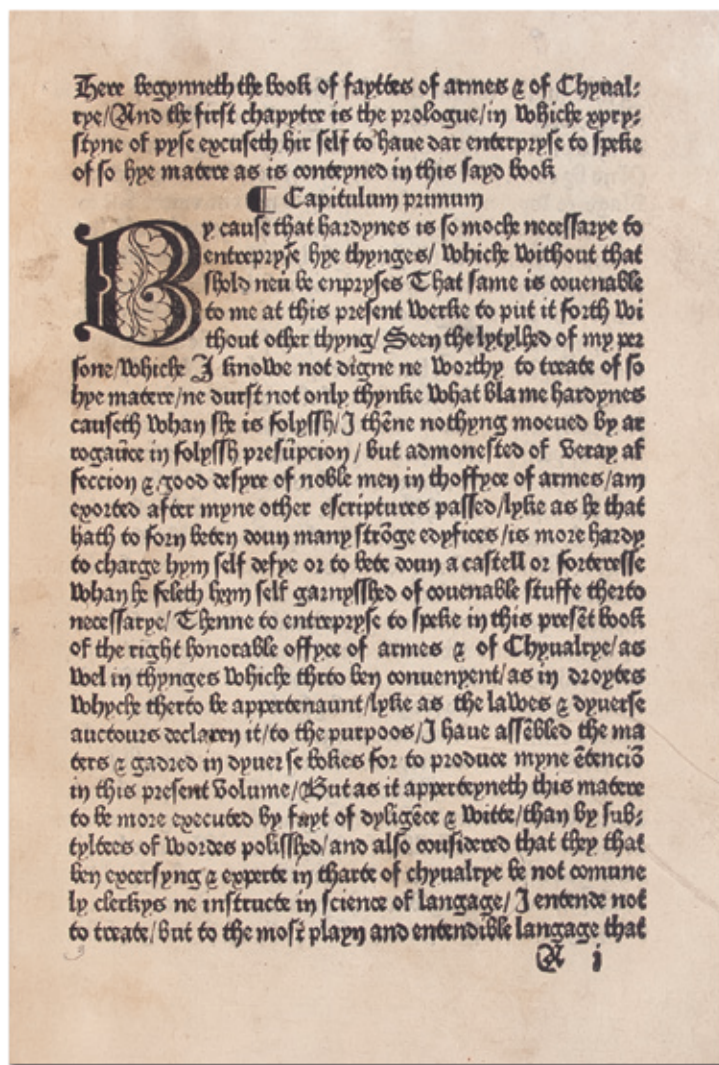 Here begynneth the book of fayttes of armes & of Chyual⸗
rye/And the first chappytre is the prologue/in whiche xpry⸗
styne of pyse excuseth hir self to haue dar enterpryse to speke
of so hye matere as is conteyned in this sayd book
¶ Capitulum primum
By cause that hardynes is so moche necessarye to
entrepryse hye thynges/ whiche without that
shold neuer be enpryses That same is couenable
to me at this present werke to put it forth wi
thout other thyng/ Seen the lytylhed of my per
sone/whiche I knowe not digne ne worthy to treate of so
hye matere/ne durst not only thynke what blame hardynes
causeth whan she is folyssh/I thēne nothyng moeued by ar
rogaūce in folyssh presūpcion / but admonested of veray af
feccion & good desyre of noble men in thoffyce of armes/am
exorted after myne other escriptures passed/lyke as he that
hath to forn beten doun many strōge edyfices/is more hardy
to charge hym self defye or to bete doun a castell or forteresse
whan he feleth hym self garnysshed of couenable stuffe therto
necessarye/ Thenne to entrepryse to speke in this presēt book
of the right honorable offyce of armes & of Chyualrye/as
wel in thynges whiche thrto ben conuenyent/as in droytes
whyche therto be appertenaunt/lyke as the lawes & dyuerse
auctours declaren it/to the purpoos/I haue assēbled the ma
ters & gadred in dyuer se bokes for to produce myne ētenciō
in this present volume/But as it apperteyneth this matere
to be more executed by fayt of dyligēce & witte/than by sub⸗
tyltees of wordes polisshed/and also considered that they that
ben excersyng & experte in tharte of chyualrye be not comune
ly clerkys ne instructe in science of langage/ I entende not
to treate/but to the most playn and entendible langage that
A j